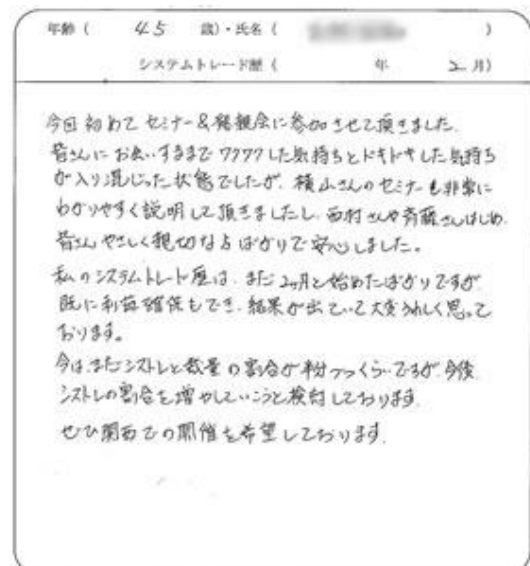 年齢( 45 歳)・氏名( )
システムトレード歴( 年 2月)
今回初めてセミナー&懇親会に参加させて頂きました。
皆さんにお会いするまでワクワクした気持ちとドキドキした気持ち
が入り混じった状態でしたが、横山さんのセミナーも非常に
わかりやすく説明して頂きましたし、西村さんや斉藤さんはじめ、
皆さんやさしく親切な方ばかりで安心しました。
私のシステムトレード歴は、まだ2ヶ月と始めたばかりですが
既に利益確保もでき、結果が出ていて大変うれしく思って
おります。
今は、まだシストレと裁量の割合が半分づつくらいですが、今後、
シストレの割合を増やしていこうと検討しております。
ぜひ関西での開催を希望しております。